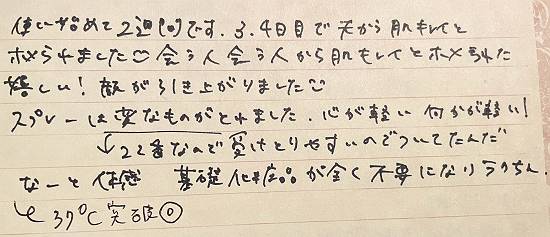 使い始めて2週間です。3.4日目で夫から肌キレイと
ホメられました☺会う人会う人から肌キレイとホメられた
嬉しい!顔が引き上がりました☺
スプレーは変なものがとれました。心が軽い 何かが軽い!
↓22番なので受けとりやすいのでついてたんだ
なーと 体感 基礎化粧品が全く不要になりラクちん.
↳ 37℃突破◎